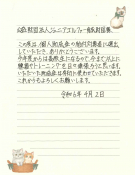 公益財団法人ジュニアゴルファー育成財団様
この度は、個人助成金の給付対象者に選出
していただき、ありがとうございます。
今年度からは高校生になるので、今まで以上に
練習やトレーニングを日々頑張ろうと思います。
いただいた助成金は有効に使わせていただきます。
これからもよろしくお願いします。
令和6年4月2日